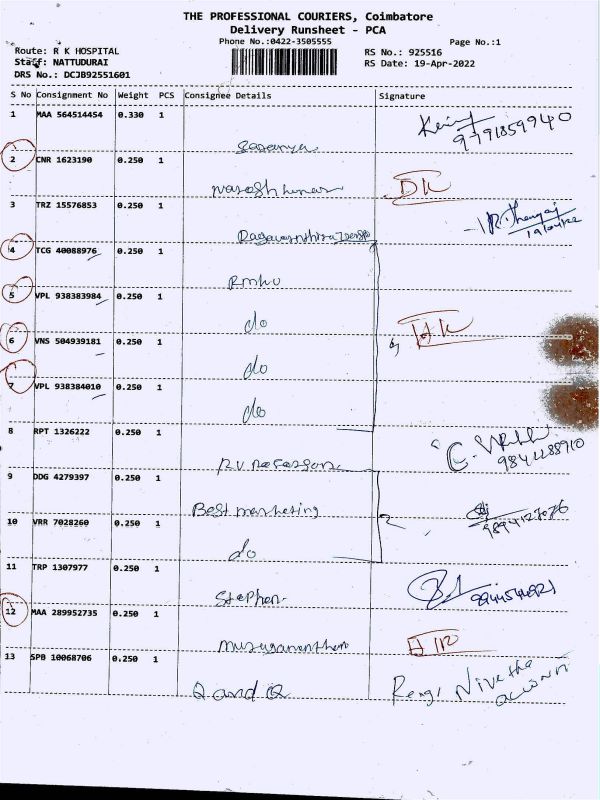 THE PROFESSIONAL COURIERS, Coimbatore
Delivery Runsheet - PCA
Phone No.:0422-3505555
Page No.:1
Route: R K HOSPITAL
RS No.: 925516
Staff: NATTUDURAI
RS Date: 19-Apr-2022
DRS No.: DCJB92551601
S No Consignment No Weight PCS Consignee Details Signature
1 MAA 564514454 0.330 1
9791859940
Saranya
2 CNR 1623190 0.250 1
Naresh kumar
3 TRZ 15576853 0.250 1
19/04/22
4 TCG 40088976 0.250 1
RMHU
5 VPL 938383984 0.250 1
do
6 VNS 504939181 0.250 1
do
7 VPL 938384010 0.250 1
do
8 RPT 1326222 0.250 1
R.V.
9 DDG 4279397 0.250 1
Best marketing
2
10 VRR 7028260 0.250 1
do
11 TRP 1307977 0.250 1
Stephen
12 MAA 289952735 0.250 1
Muruganantham
13 SPB 10068706 0.250 1
Q and Q
Nivetha